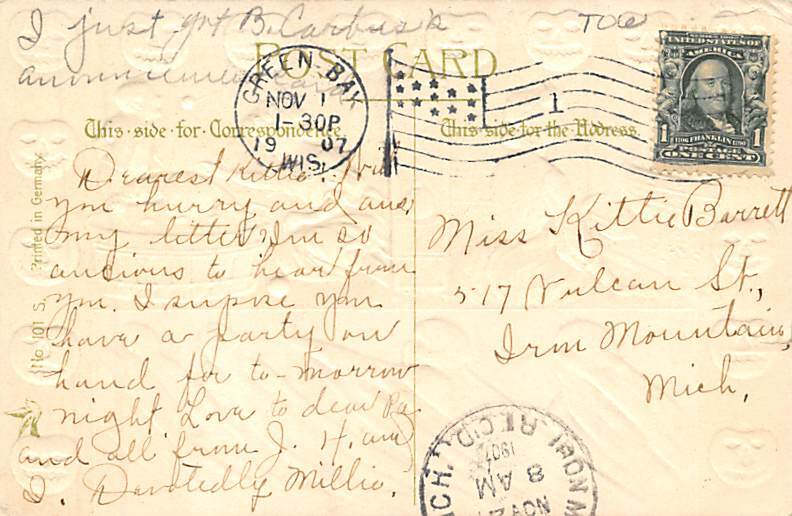 I just got B. Carbus's
announcement card
TOO
POST CARD
GREEN BAY
NOV 1
1-30P
1907
WIS.
1
UNITED STATES OF
AMERICA
1 1706 FRANKLIN 1790 1
POSTAGE
ONE CENT
This side for Correspondence.
This side for the Address.
Dearest Kittie: Will
you hurry and ans.
my letter I'm so
ancious to hear from
you. I supose you
have a party on
hand for to-morrow
night. Love to dear
and all from J. H. and
E. Devotedly Millie.
Miss Kittie Barrett
517 Vulcan St.,
Iron Mountain,
Mich.
No. 101 S. Printed in Germany.
IRON M
MICH. REC'D.
NOV 2
8 AM
1907